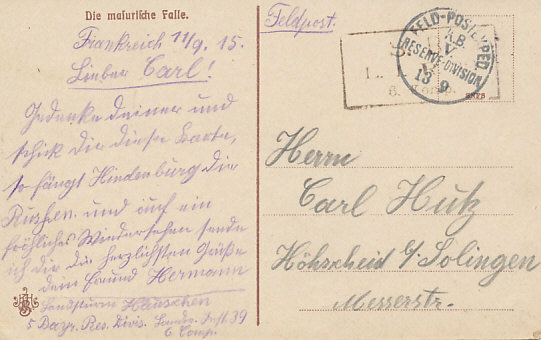 Die masurische Falle.
Frankreich 11/9. 15.
Lieber Carl!
Gedenke deiner und
schick dir diese Karte,
so fängt Hindenburg die
Russen und auf ein
fröhliches Wiedersehen sende
ich dir die herzlichsten Grüße
dein Freund Hermann
Landsturm
5 Bayr. Res. Divis. Landw. Inft. 39
6 Comp.
Feldpost.
FELD-POSTEXPED
K.B.
V.
RESERVE-DIVISION
13 9
Herrn
Carl Hutz
Höhscheid b/ Solingen
Messerstr.